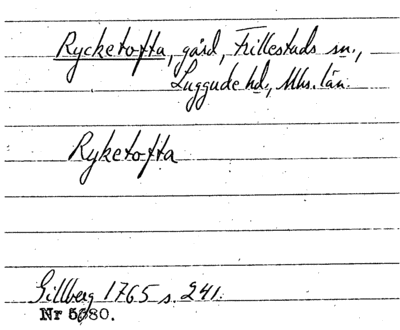 Rycketofta, gård, Frillestads sn.,
Luggude hd., Mhs. län.
Ryketofta
Gillberg 1765 s. 241.
Nr 5680.